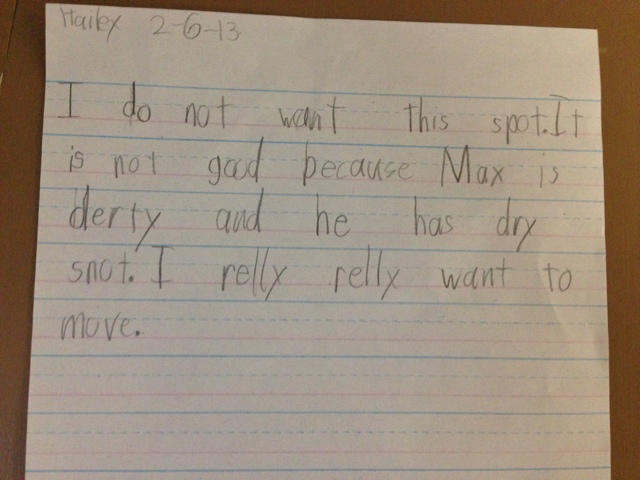 Hailey 2-6-13
I do not want this spot. It
is not good because Max is
derty and he has dry
snot. I relly relly want to
move.